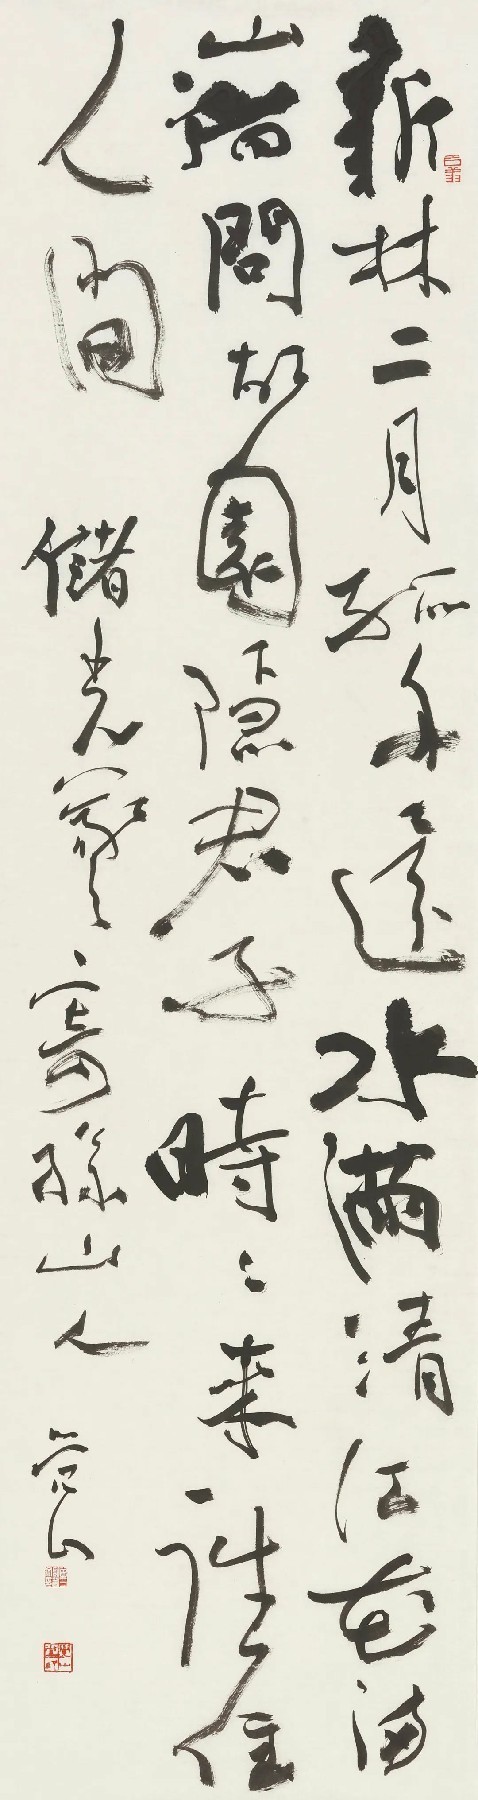 新林二月孤舟還水滿清江花滿
山借問故園隱君子時〻来往住
人間 儲光羲寄孫山人